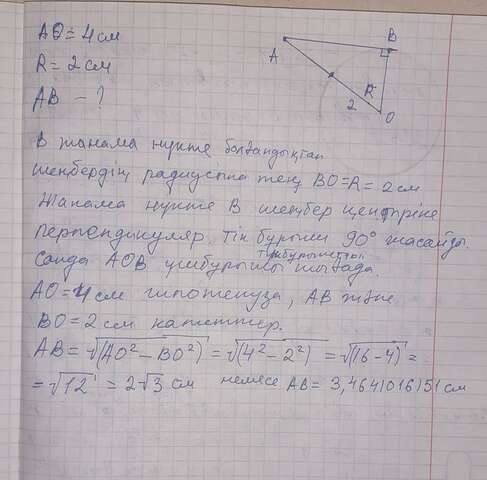 AO = 4 см
R = 2 см
AB - ?
A
B
R
2
O
В жанама нүкте болғандықтан
шеңбердің радиусына тең BO=R= 2 см
Жанама нүкте В шеңбер центріне
перпендикуляр. Тік бұрыш 90° жасайды.
тікбұрышты
Сонда AOB үшбұрышы шығады.
AO=4 см гипотенуза, AB және
BO=2 см катеттер.
AB = √(AO² - BO²) = √(4² - 2²) = √(16-4) =
= √12 = 2√3 см немесе AB = 3,4641016151 см